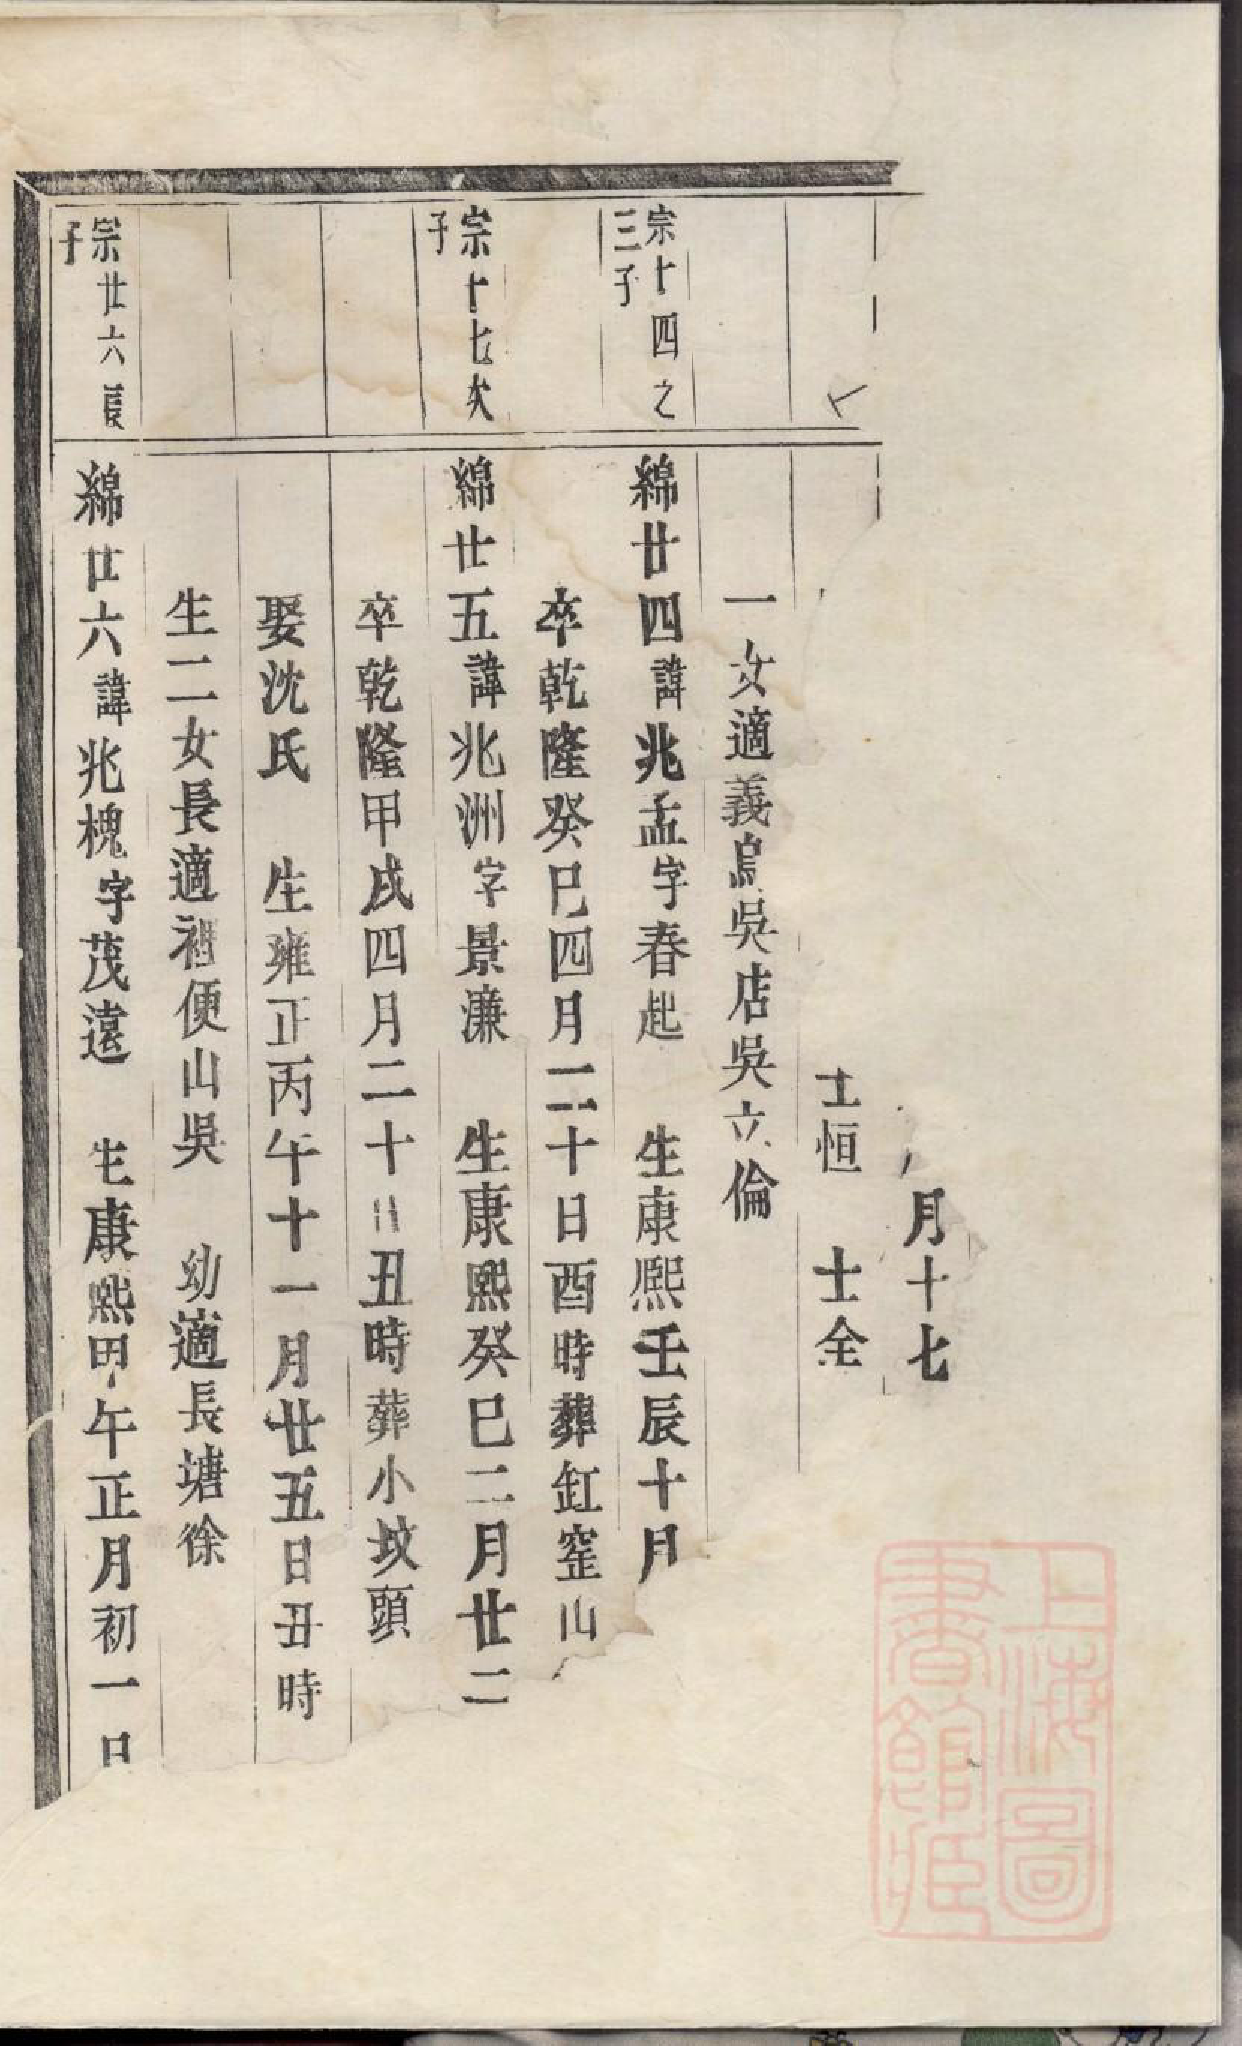 月十七
士恒 士全
一女適義烏吳店吳立倫
宗十四之
三子
綿廿四諱兆孟字春起 生康熙壬辰十月
卒乾隆癸巳四月二十日酉時葬缸窑山
宗十七次
子
綿廿五諱兆洲字景濂 生康熙癸巳二月廿二
卒乾隆甲戌四月二十日丑時葬小坟頭
娶沈氏 生雍正丙午十一月廿五日丑時
生二女長適裡便山吳 幼適長塘徐
宗廿六長
子
綿廿六諱兆槐字茂遠 生康熙甲午正月初一日
上海圖
書館藏